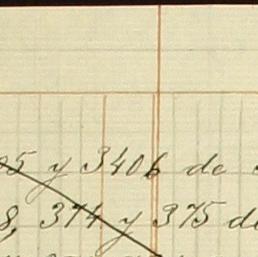 05 y 3406 de
8, 374 y 375 de